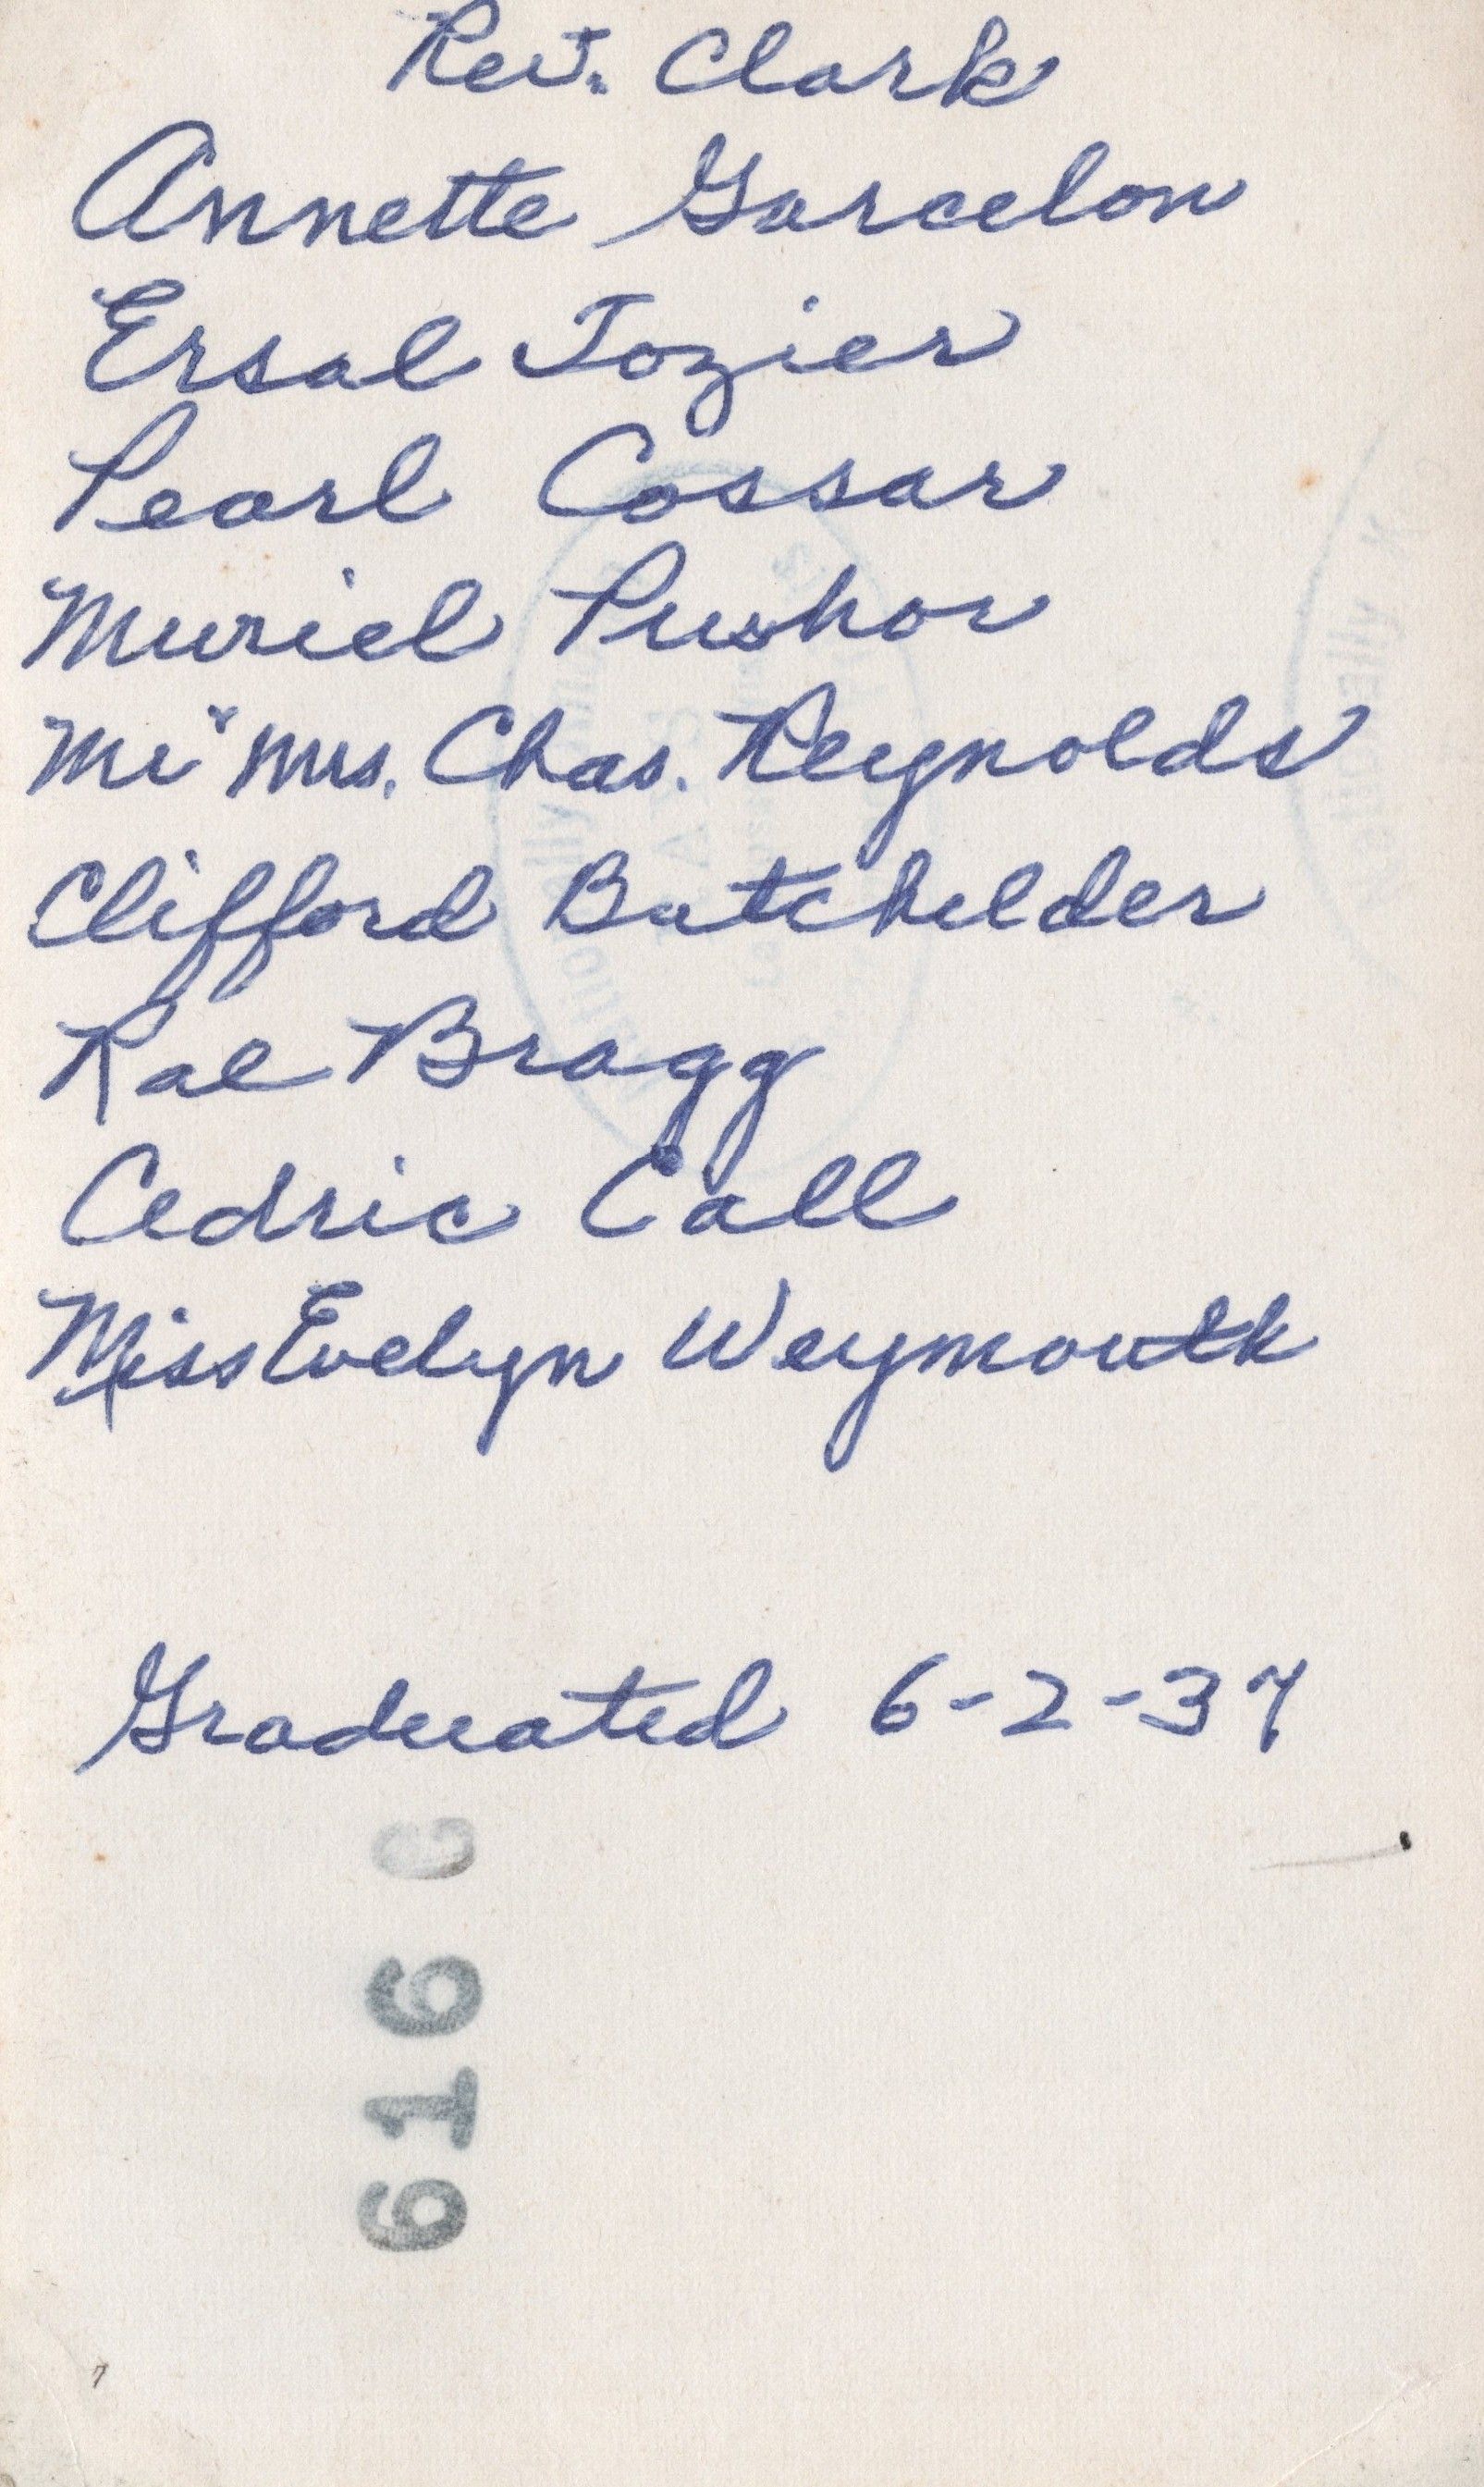 Rev. Clark
Annette Garcelon
Ersal Tozier
Pearl Cossar
Muriel Pushor
Mr & Mrs. Chas. Reynolds
Clifford Batchelder
Rae Bragg
Cedric Call
Miss Evelyn Weymouth
Graduated 6-2-37
616 C
7